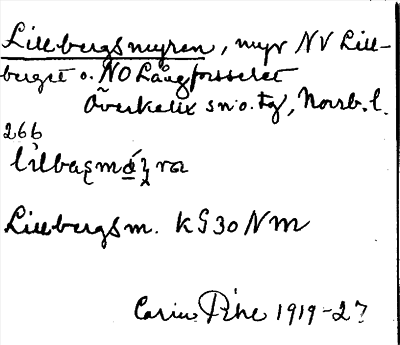 Lillbergsmyren, myr NV Lill-
berget o. NO Långforsselet
Överkalix sn o. tg, Norrb. l.
266
Lillbergsm. KG30NM
Carin Pihl 1919-27